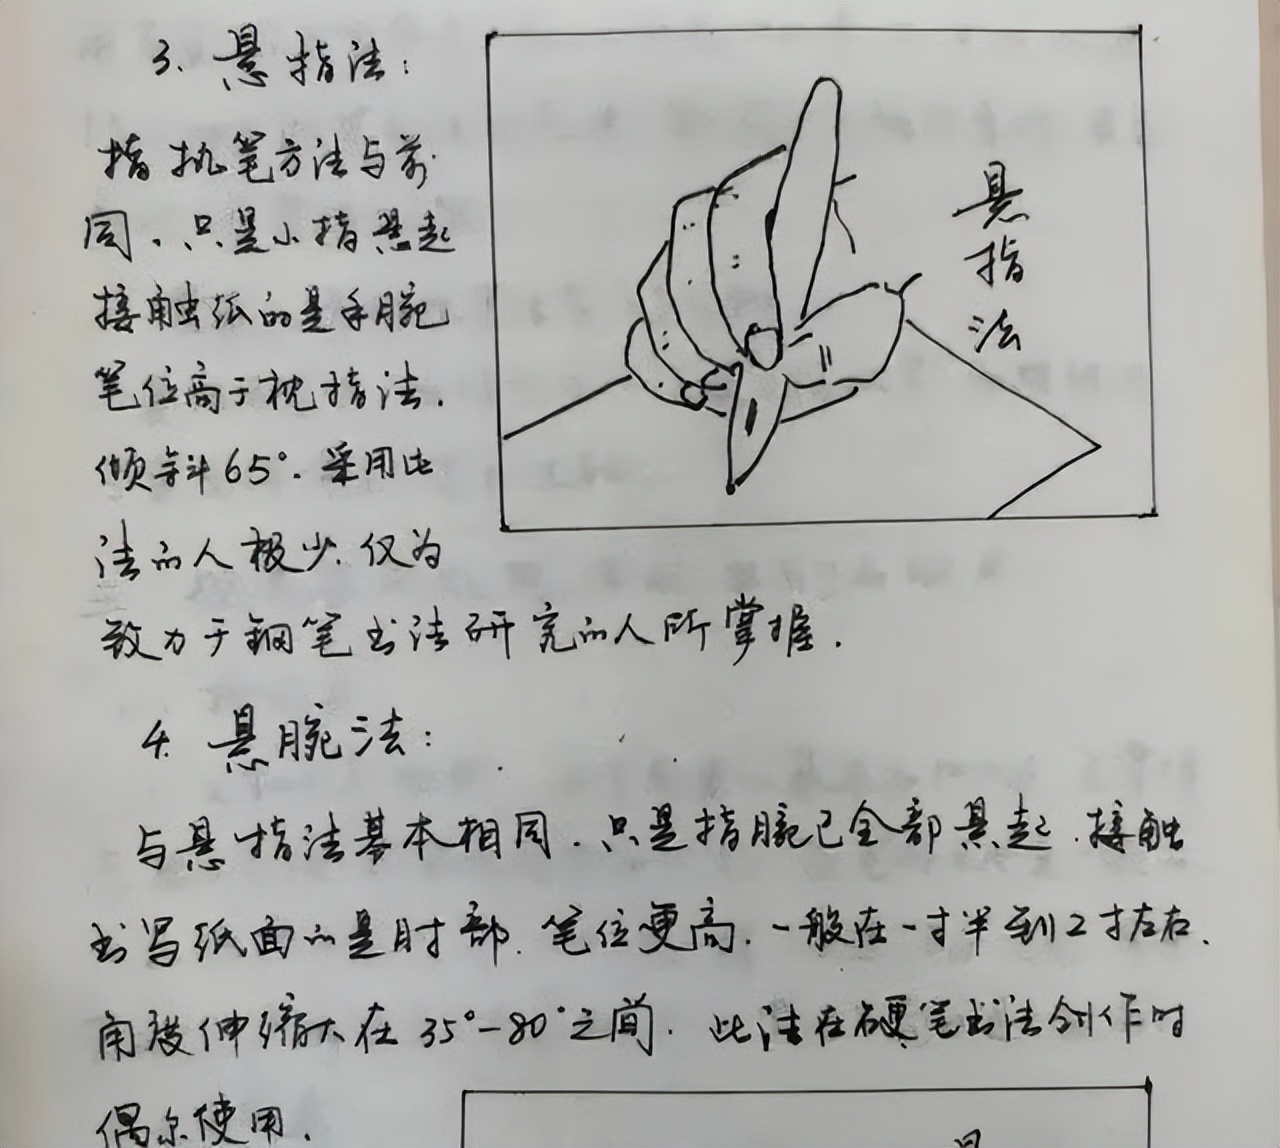 3. 悬指法：
指执笔方法与前
同，只是小指悬起
接触纸的是手腕
笔位高于枕指法.
倾斜65°. 采用此
法的人极少. 仅为
致力于钢笔书法研究的人所掌握.
悬指法
4. 悬腕法：
与悬指法基本相同. 只是指腕已全部悬起. 接触
书写纸面的是肘部. 笔位更高. 一般在一寸半到2寸左右.
角度伸缩大在35°-80°之间. 此法在硬笔书法创作时
偶尔使用.